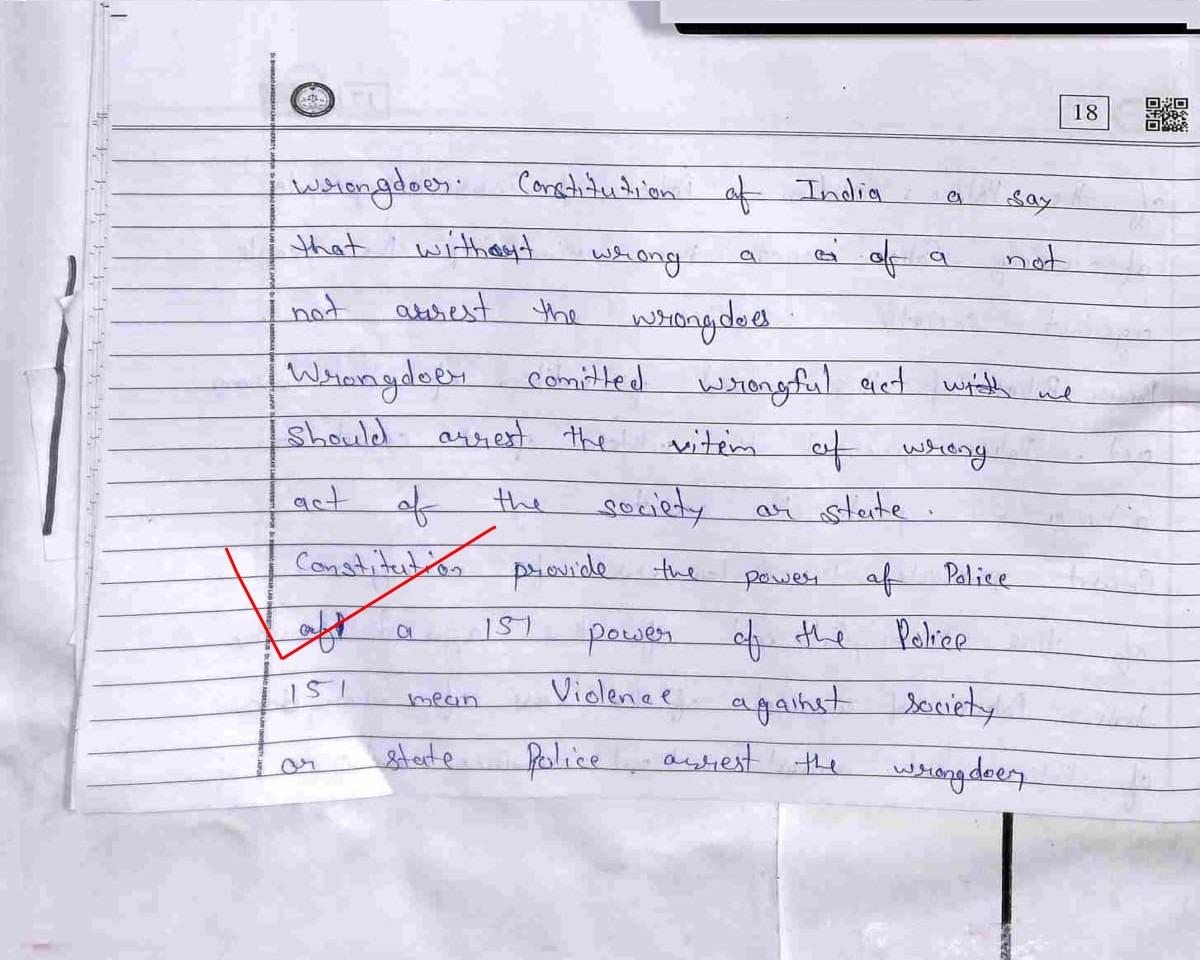 18
wrongdoer. Constitution of India a say
that without wrong a of a not
not arrest the wrongdoes
Wrongdoer comitted wrongful act with we
should arrest the vitim of wrong
act of the society or state.
Constitution provide the power of Police
of a 151 power of the Police
151 mean Violence against society
or state Police arrest the wrongdoer